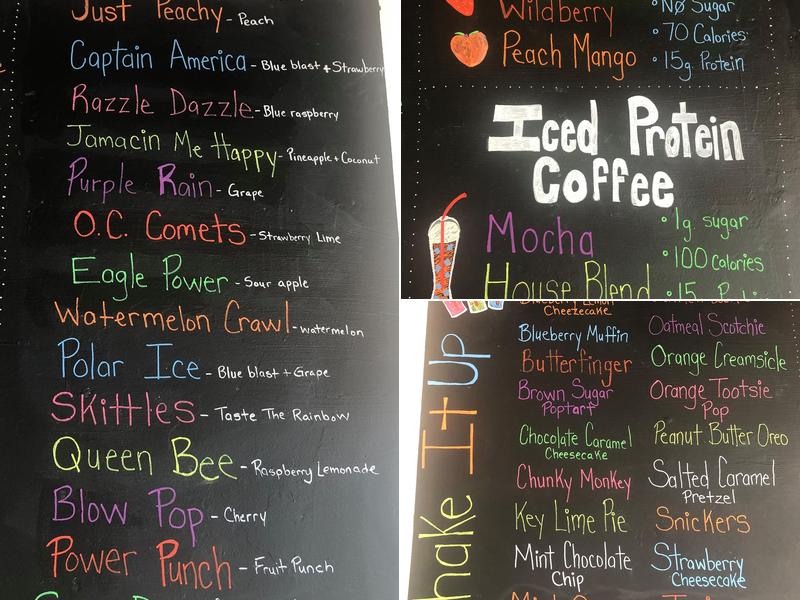 Just Peachy - Peach
Captain America - Blue blast + Strawberry
Razzle Dazzle - Blue raspberry
Jamacin Me Happy - Pineapple + Coconut
Purple Rain - Grape
O.C. Comets - Strawberry Lime
Eagle Power - Sour apple
Watermelon Crawl - watermelon
Polar Ice - Blue blast + Grape
Skittles - Taste The Rainbow
Queen Bee - Raspberry Lemonade
Blow Pop - Cherry
Power Punch - Fruit Punch
Wildberry
Peach Mango
• NØ Sugar
• 70 Calories
• 15g. Protein
Iced Protein
Coffee
Mocha
House Blend
• 1g sugar
• 100 calories
• 15
hake It Up
Cheezecake
Blueberry Muffin
Butterfinger
Brown Sugar
Poptart
Chocolate Caramel
Cheesecake
Chunky Monkey
Key Lime Pie
Mint Chocolate
Chip
Oatmeal Scotchie
Orange Creamsicle
Orange Tootsie
Pop
Peanut Butter Oreo
Salted Caramel
Pretzel
Snickers
Strawberry
Cheesecake